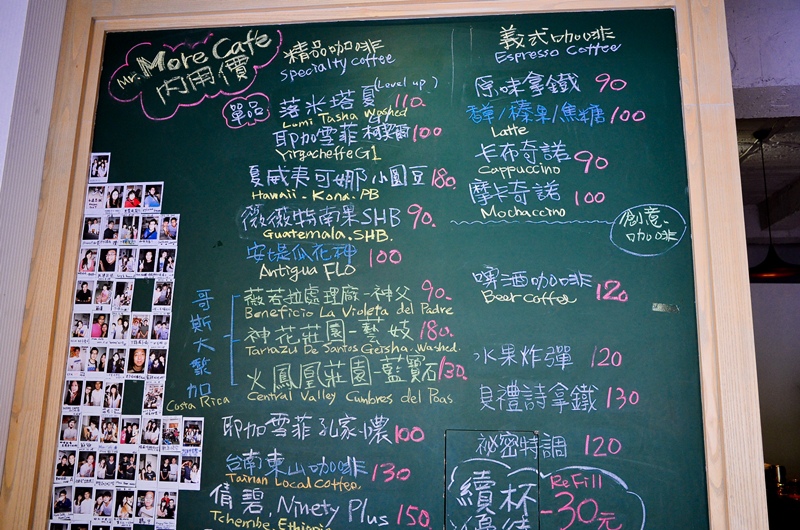 Mr. More Cafe
內用價
精品咖啡
Specialty coffee
單品
(Level up)
落米塔夏 110.
Lumi Tasha Washed
耶加雪菲 100
Yirgacheffe G1
夏威夷可娜小圓豆 180.
Hawaii. Kona. PB
薇薇特南果SHB 90.
Guatemala. SHB.
安提瓜花神 100
Antigua FLO
哥斯大黎加
Costa Rica
薇若拉處理廠-神父 90.
Beneficio La Violeta del Padre
神花莊園-藝妓 180.
Tarrazu De Santos Geisha. Washed
火鳳凰莊園-藍寶石 130.
Central Valley Cumbres del Poas
耶加雪菲孔家-濃 100
台南東山咖啡 130
Tainan Local Coffee.
倩碧, Ninety Plus 150
Tchembe, Ethiopia
義式咖啡
Espresso Coffee
原味拿鐵 90
香草/榛果/焦糖 100
Latte
卡布奇諾 90
Cappuccino
摩卡奇諾 100
Mochaccino
創意咖啡
啤酒咖啡 120
Bear Coffee
水果炸彈 120
貝禮詩拿鐵 130
祕密特調 120
續杯
ReFill
-30元